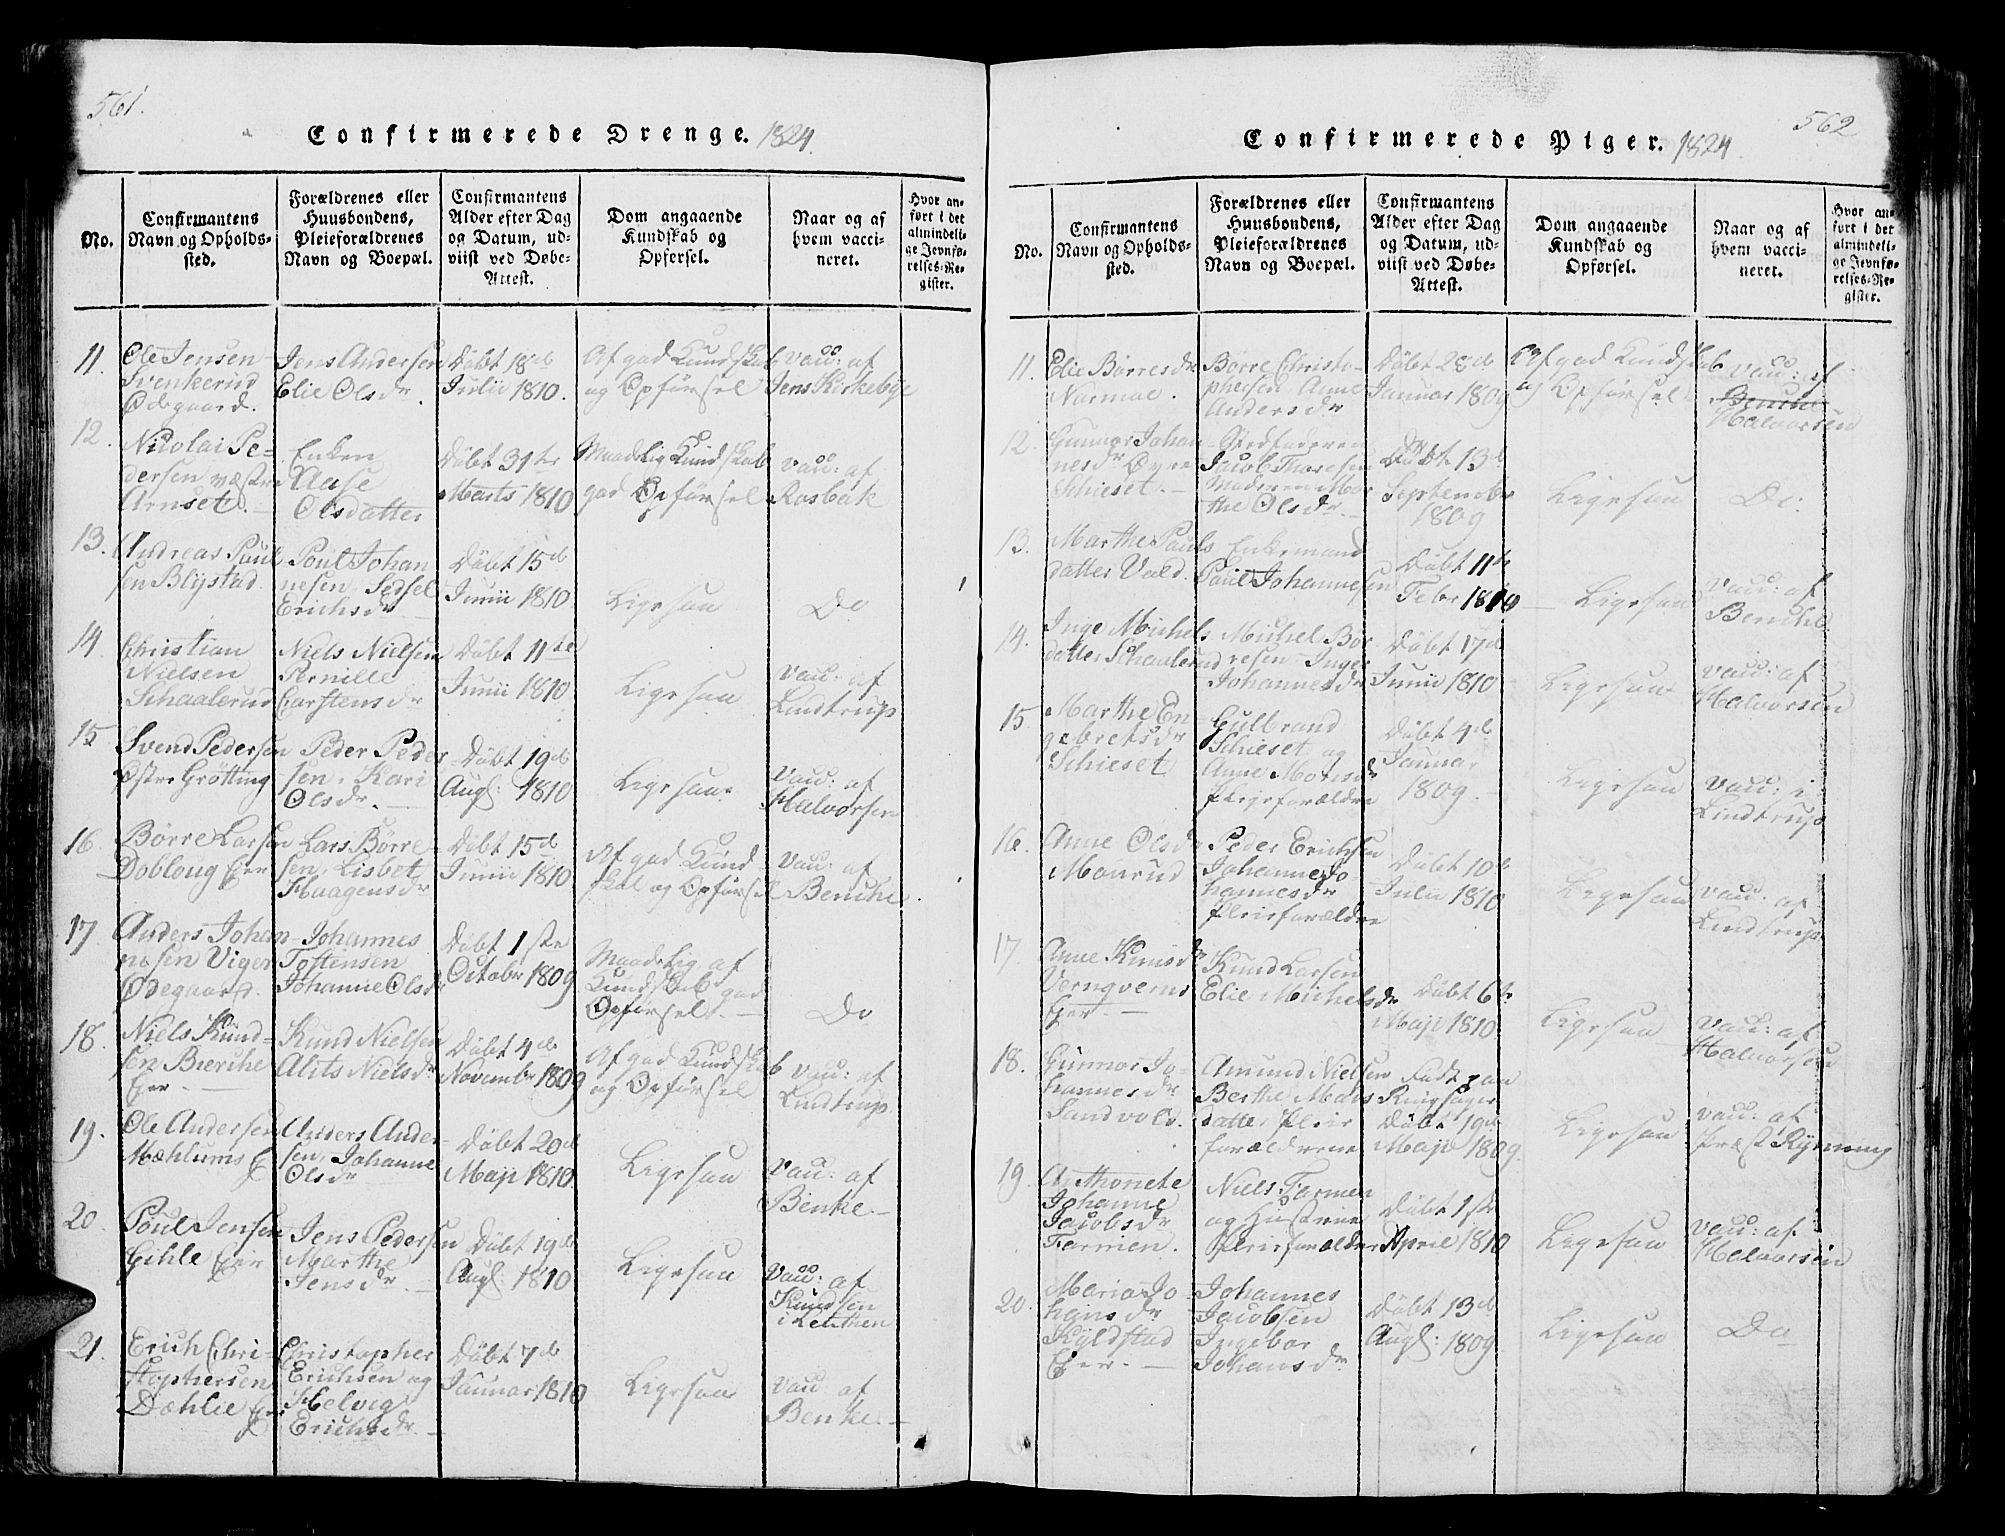 561.
Confirmerede Drenge. 1824.
No.
Confirmantens
Navn og Opholds-
sted.
Forældrenes eller
Huusbondens,
Pleieforældrenes
Navn og Boepæl.
Confirmantens
Alder efter Dag
og Datum, ud-
viist ved Døbe-
Attest.
Dom angaaende
Kundskab og
Opførsel.
Naar og af
hvem vacci-
neret.
Hvor an-
ført i det
almindeli-
ge Jevnfø-
relses-Re-
gister.
11.
Ole Jensen
Svenkerud
Ødegaard.
Jens Andersen
Elie Olsdr.
Døbt 18d
Julii 1810.
Af god Kundskab
og Opførsel
vacc: af
Jens Kirkebye
12.
Nicolai Pe-
dersen væstre
Arnset.
Enken
Aase
Olsdatter
Døbt 31te
Marts 1810
Maadelig Kundskab
god Opførsel
vacc: af
Rosbak
13.
Andreas Paul
sen Blystad
Poul Johan
nesen, Sedsel
Erichsdr
Døbt 15d
Junii 1810
Ligesaa
Do
14
Christian
Nielsen
Schaalerud
Niels Nielsen
Pernille
Carstensdr
Døbt 11te
Junii 1810
Ligesaa
vacc: af
Lindtrup
15
Svend Pedersen
Østre Grøtting
Peder Peder
sen, Kari
Olsdr.
Døbt 19d
Augl: 1810
Ligesaa
Vacc: af
Halvorsen
16.
Børre Larsen
Dobloug Eier
Lars Børre
sen, Lisbet
Haagensdr
Døbt 15d
Junii 1810
Af god Kund
skab og Opførsel
vacc: af
Benche
17
Anders Johan
nesen Viger
Ødegaard.
Johannes
Tostensen
Johanne Olsdr
Døbt 1ste
October 1809
Maadelig af
Kundskab god
Opførsel.
Do
18.
Niels Knud-
sen Bierche
Eier
Knud Nielsen
Alits Nielsdr
Døbt 4de
November 1809
Af god Kundskab
og Opførsel
vacc: af
Lindtrup
19.
Ole Andersen
Mæhlums E
Anders Ander-
sen, Johanne
Olsdr
Døbt 20d
Maji 1810
Ligesaa
vacc: af
Benke
20
Poul Jensen
Gihle Eier
Jens Pedersen
Marthe
Jensdr
Døbt 19de
Augl: 1810
Ligesaa
Vacc: af
Knudsen
i Leuthen
21.
Erich Chri-
stophersen
Dæhlie Eier
Christopher
Erichsen og
Helvig
Erichsdr
Døbt 7d
Januar 1810
Ligesaa
vacc af
Benke
562
Confirmerede Piger. 1824
No.
Confirmantens
Navn og Opholds-
sted.
Forældrenes eller
Huusbondens,
Pleieforældrenes
Navn og Boepæl.
Confirmantens
Alder efter Dag
og Datum, ud-
viist ved Døbe-
Attest.
Dom angaaende
Kundskab og
Opførsel.
Naar og af
hvem vacci-
neret.
Hvor an-
ført i det
almindeli-
ge Jevnfø-
relses-Re-
gister.
11.
Elie Børresdr
Normoe.
Børre Christo-
phersen Anne
Andersdr
Døbt 28d
Januar 1809
Af god Kundskab
og Opførsel
vacc: af
Benche
Halvorsen
12.
Gunnor Johan
nesdr Øvre
Schieset.
Stedfaderen
Jacob Thoresen
Moderen Mar
the Olsdr.
Døbt 13d
September
1809
Ligesaa
Do.
13.
Marthe Pauls
datter Vold.
Enkemand
Paul Johannesen
Døbt 11te
Febr 1810
Ligesaa
vacc: af
Benche
14.
Inge Michels
datter Schaalerud
Michel Bor
resen Inger
Johannesdr
Døbt 17d
Junii 1810
Ligesaa
vacc: af
Halvorsen
15
Marthe En-
gebretsdr
Schieset
Gulbrand
Schieset og
Anne Monsdr
Pleieforældre
Døbt 4d
Januar
1809.
Ligesaa
vacc: i
Lindtrup
16.
Anne Olsdr
Mourud
Peder Erichsen
Johanne Jo
hannesdr
Pleieforældre
Døbt 10d
Julii 1810
Ligesaa
vacc: af
Lindtrup
17.
Anne Knudsdr
Vernqverns
Eier.
Knud Larsen
Elie Michelsdr
Døbt 6te
Maji 1810
Ligesaa
vacc: af
Halvorsen
18.
Gunnor Jo-
hannesdr
Sandvold.
Amund Nielsen
Berthe Mads
datter Pleie
forældrene
Født paa
Ringsager
Døbt 19d
Maji 1809
Ligesaa
vacc: af
Præst Rynning
19
Anthonete
Johanne
Jacobsdr
Farmen.
Niels Farmen
og Hustrue
Pleieforældre
Døbt 1ste
April 1810
Ligesaa
vacc: af
Halvorsen
20.
Maria Jo
hansdr
Kyldstad
Eier.
Johannes
Jacobsen
Ingebor
Johansdr
Døbt 13d
Augl: 1809
Ligesaa
Do